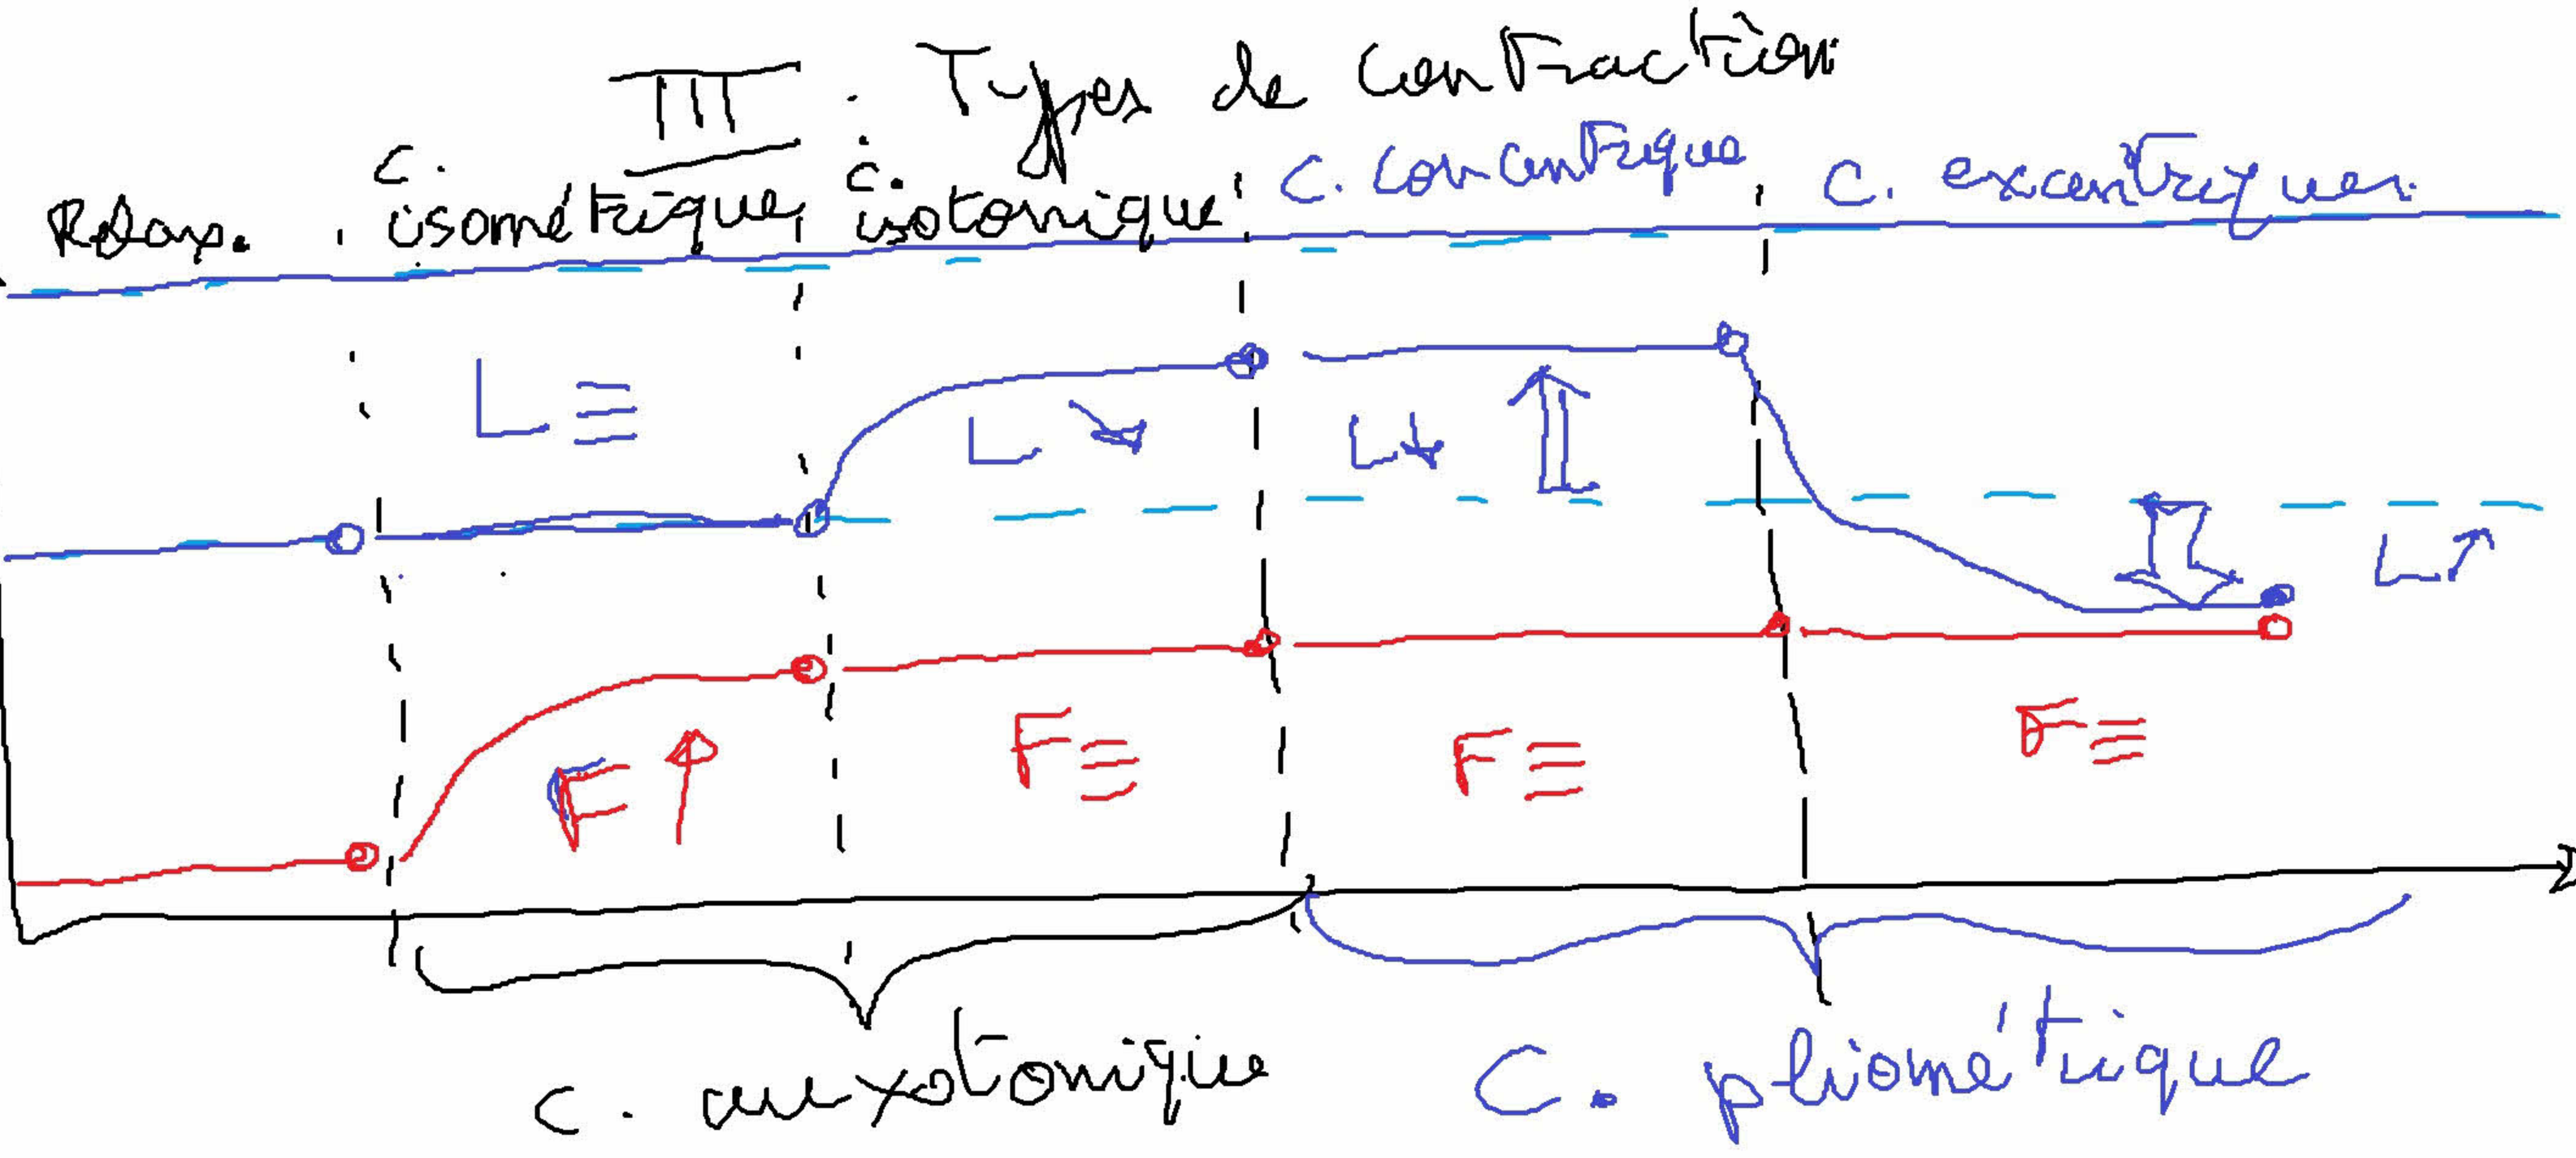 III : Types de contraction
Relax. C. isométrique C. isotonique C. concentrique C. excentrique
L ≡ L ↘ L ↓ ⇑ ⇓ L ↗
F ↑ F ≡ F ≡ F ≡
C. auxotonique C. pliométrique